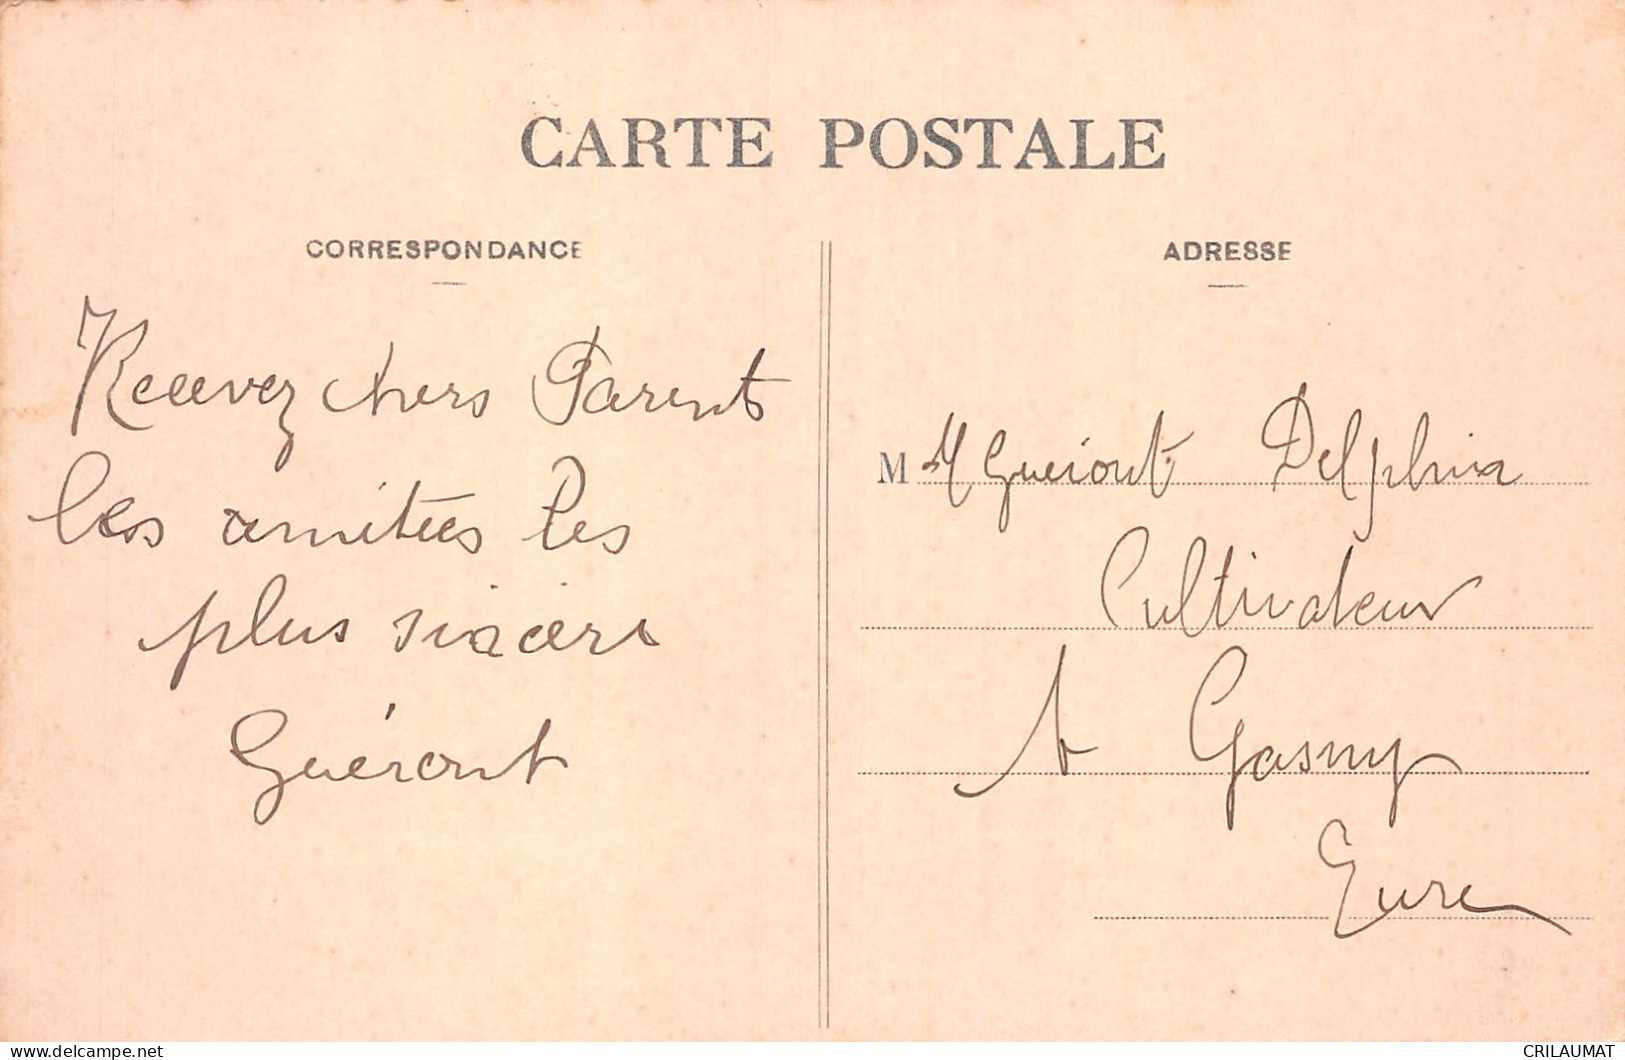 CARTE POSTALE
CORRESPONDANCE
ADRESSE
Recevez chers Parents
les amitiées les
plus sincers
Guéront
M M Guéront Delphin
Cultivateur
à Gasny
Eure
delcampe.net
CRILAUMAT